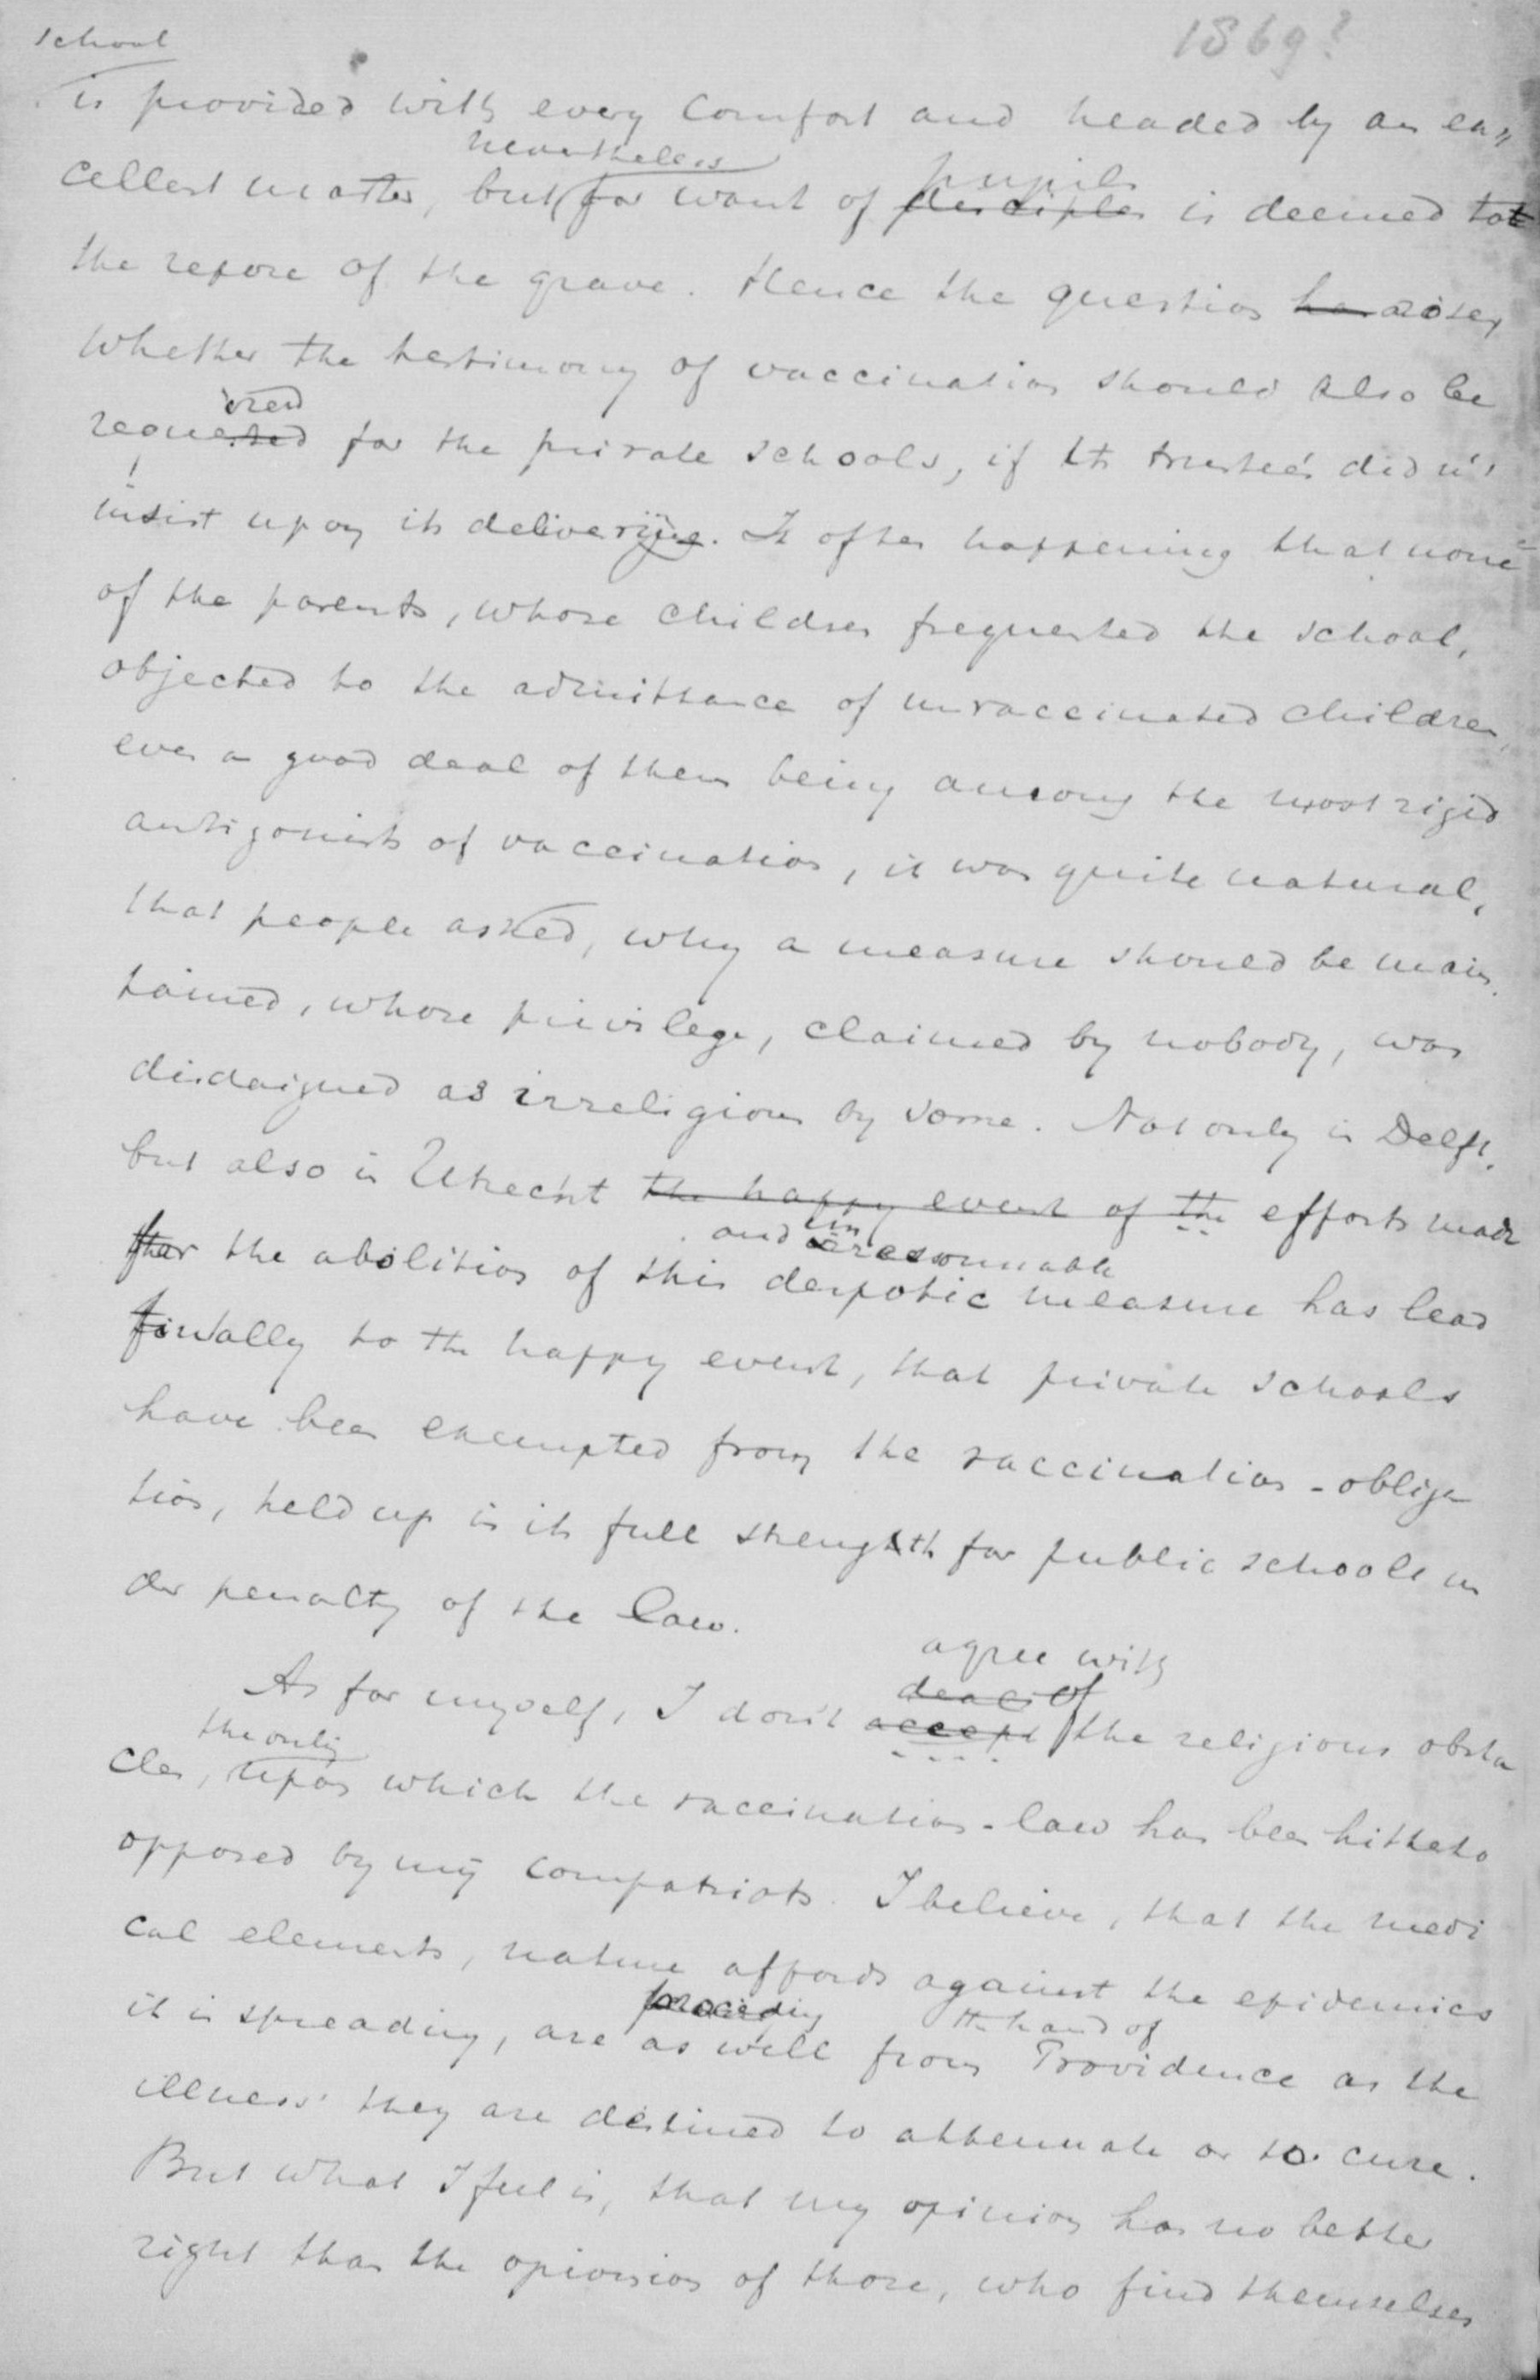 1869?
school
is provided with every comfort and headed by an ex„
nevertheless
cellent master, but for want of disciples is deemed to
pupils
the repose of the grave. Hence the question has arisen
whether the testimony of vaccination should also be
requested for the private schools, if its trustee's did n't
ired
insist upon its delivering. It often happening that none
of the parents, whose children frequented the school,
objected to the admittance of unvaccinated children,
even a good deal of them being among the most rigid
antigonists of vaccination, it was quite natural,
that people asked, why a measure should be main
tained, whose privilege, claimed by nobody, was
disdaigned as irreligious by some. Not only in Delft,
but also in Utrecht the happy event of the efforts made
and unreasonnable
for the abolition of this despotic measure has lead
finally to the happy event, that private schools
have been exempted from the vaccination-obliga
tion, held up in its full strength for public schools un
der penalty of the law.
agree with
deal of
As for myself, I don't accept the religious obsta
the only
cles, upon which the vaccination-law has been hitherto
opposed by my compatriots. I believe, that the medi
cal elements, nature affords against the epidemics
proceeding
the hand of
it is spreading, are as well from Providence as the
illness they are destined to attenuate or to cure.
But what I feel is, that my opinion has no better
right than the opinion of those, who find themselves